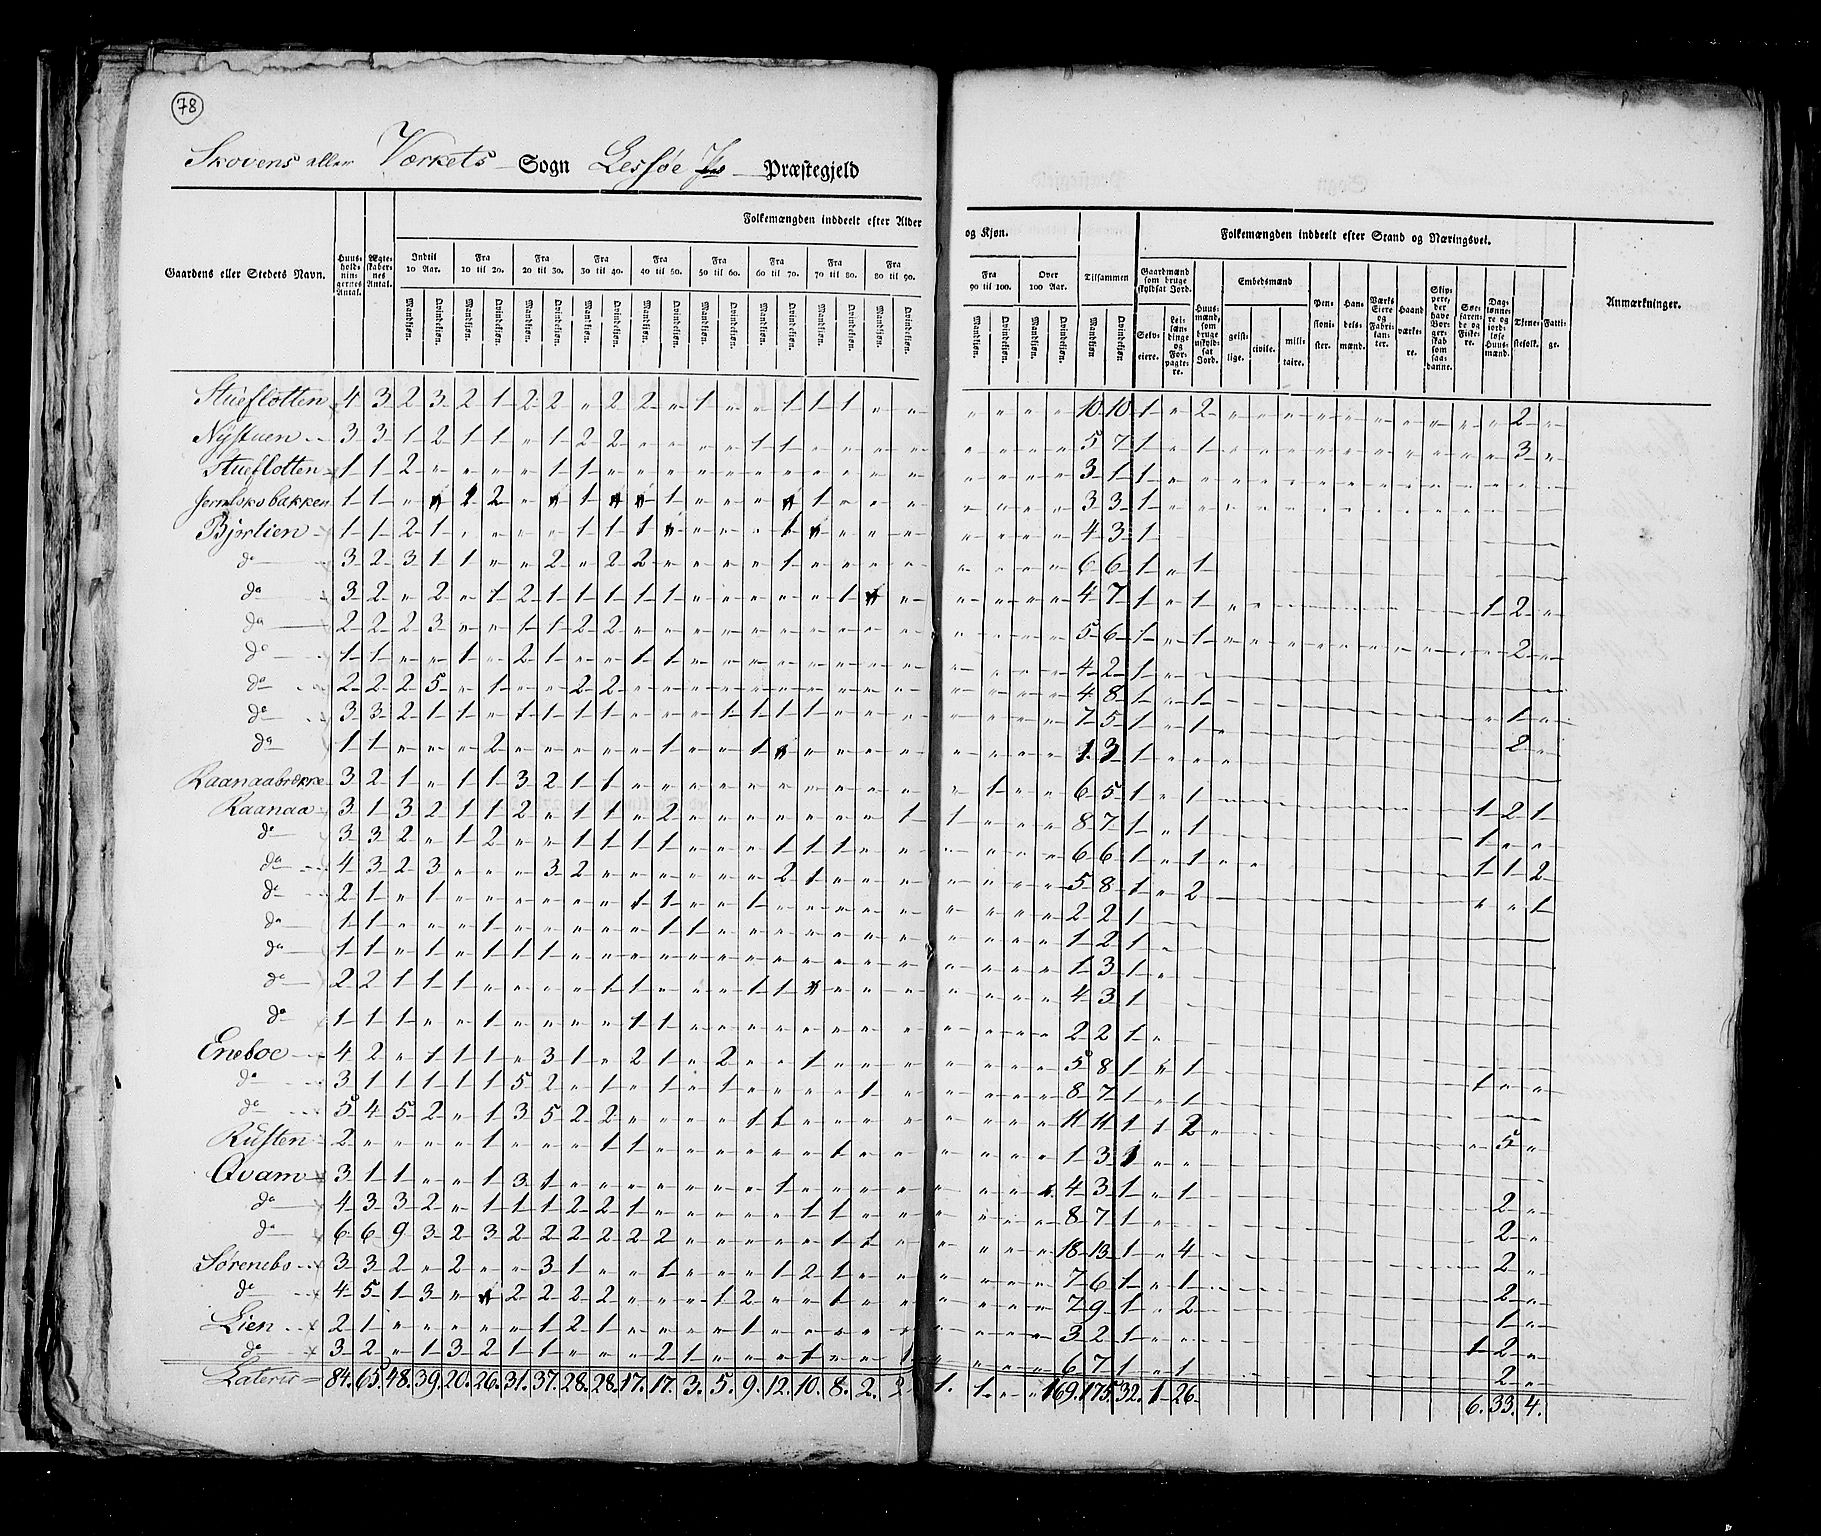 78
Skovens eller Værkets Sogn Lessøe Præstegjeld
Folkemængden inddeelt efter Alder
og Kjøn.
Folkemængden inddeelt efter Stand og Næringsvei.
Gaardens eller Stedets Navn.
Huus-holdnin-gernes Antal.
Ægte-skaber-nes Antal.
Indtil 10 Aar.
Fra 10 til 20.
Fra 20 til 30.
Fra 30 til 40.
Fra 40 til 50.
Fra 50 til 60.
Fra 60 til 70.
Fra 70 til 80.
Fra 80 til 90.
Fra 90 til 100.
Over 100 Aar.
Tilsammen
Mandkjøn. Qvindekjøn.
Gaardmænd som bruge skyldsat Jord.
Selv-eiere.
Lei-lændinge og For-pagte-re.
Huus-mænd, som bruge uskyld-sat Jord.
Embedsmænd
geist-lige.
civile.
mili-taire.
Pen-sioni-ster.
Han-dels-mænd.
Værks Eiere og Fabri-kan-ter.
Haand værke-re.
Skip-pere, der have Bor-ger-skab som saa-danne.
Søe-faren-de og Fiske-re.
Dag-lønne-re og jord-løse Huus-mænd.
Tjene-stefolk.
Fatti-ge.
Anmærkninger.
Stueflotten 4 3 2 3 2 1 2 2 „ 2 2 „ 1 „ „ 1 1 1 „ „ „ „ „ „ 10 10 1 „ 2 2 „
Nÿstuen 3 3 1 2 1 1 „ 1 2 2 „ „ „ „ 1 1 „ „ „ „ 5 7 1 „ 1 3 „
Stueflotten 1 1 2 „ „ „ „ 1 1 „ 3 1 1
1 1 3 3 1
Bjørlien 1 1 2 1 4 3 1
do 3 2 3 1 1 „ „ 2 „ 2 2 „ „ „ „ 1 „ 6 6 1 „ 1
do 3 2 „ 2 „ 1 2 1 1 1 1 1 4 7 1 „ 1 1 2 „
do 2 2 2 3 „ „ 1 1 2 2 „ 5 6 1 „ 1 2 „
do 1 1 „ „ 1 „ 2 1 „ „ 1 1 „ 4 2 1
do 2 2 2 5 „ 1 „ „ 2 2 „ 4 8 1 „ 1 1 „
do 3 3 2 1 1 „ 1 1 1 1 „ „ „ 1 1 1 1 „ 7 5 1 „ 1 2 „
do 1 1 „ „ „ 2 „ 1 3 1
Raanaabrekke 3 2 1 „ 1 1 3 2 1 1 „ 1 6 5 1 „ 1 1 2 1
Raanaa 3 1 3 2 1 1 2 „ 1 1 „ 2 „ 1 1 8 7 1 „ 1 1 „ „
do 3 3 2 „ 1 2 „ „ 1 1 1 1 „ „ „ 1 1 1 „ 6 6 1 „ 1 1 1 2
do 4 3 2 3 „ „ „ 3 2 „ 2 1 „ 5 8 1 „ 2 „ „ 1
do 2 1 „ 1 „ 1 1 „ „ 1 „ 2 2 1
do 1 1 „ „ „ 1 „ 1 1 „ 1 2 1
do 1 1 „ 1 „ 1 1 1 „ 1 3 1
do 2 2 1 1 1 „ „ „ „ 1 1 „ „ „ 1 1 4 3 1
do 1 1 1 „ „ 1 „ „ „ „ 1 1 „ 2 2 1
Eneboe 4 2 „ 1 1 1 „ 3 1 „ 2 1 „ 2 „ „ 1 „ 5 8 1 „ 1 1 „ „
do 3 1 1 1 1 1 5 2 „ 1 „ 1 „ 1 „ 1 8 7 1 „ 1
do 5 4 5 2 „ 1 3 5 2 2 „ 1 1 „ 11 11 1 1 2 5 „
Rusten 2 „ „ „ „ 1 „ „ „ 1 1 „ 1 „ 1 3 1
Qvam 3 1 1 „ „ 1 3 1 „ 1 „ 4 3 1 „ 1 2 „
do 4 3 3 2 „ 1 1 1 2 2 1 „ 1 1 „ 8 7 1 2 „
do 6 6 9 3 2 3 2 2 2 2 2 2 „ 1 1 18 13 1 „ 4 2 „
Sørenebo 3 3 2 „ 2 „ „ 3 1 „ „ 1 „ „ „ 1 2 1 „ 7 6 1 „ 1 2 „
do 4 5 1 3 „ 2 2 2 2 „ „ „ 1 2 „ „ 1 „ 7 9 1 „ 2 1 „
Lien 2 1 „ „ „ „ „ 1 2 1 „ „ „ „ 1 „ 3 2 1 1 2 „
do 3 2 „ 1 3 2 1 1 „ „ „ 2 1 „ „ „ 1 „ „ 1 6 7 1 „ 1 2 „
Lateris 84. 65. 48. 39. 20. 26. 31. 37. 28. 28. 17. 17. 3. 5. 9. 12. 10. 8. 2. 2 1. 1. „ „ 169. 175. 32. 1 26 6. 33. 4.